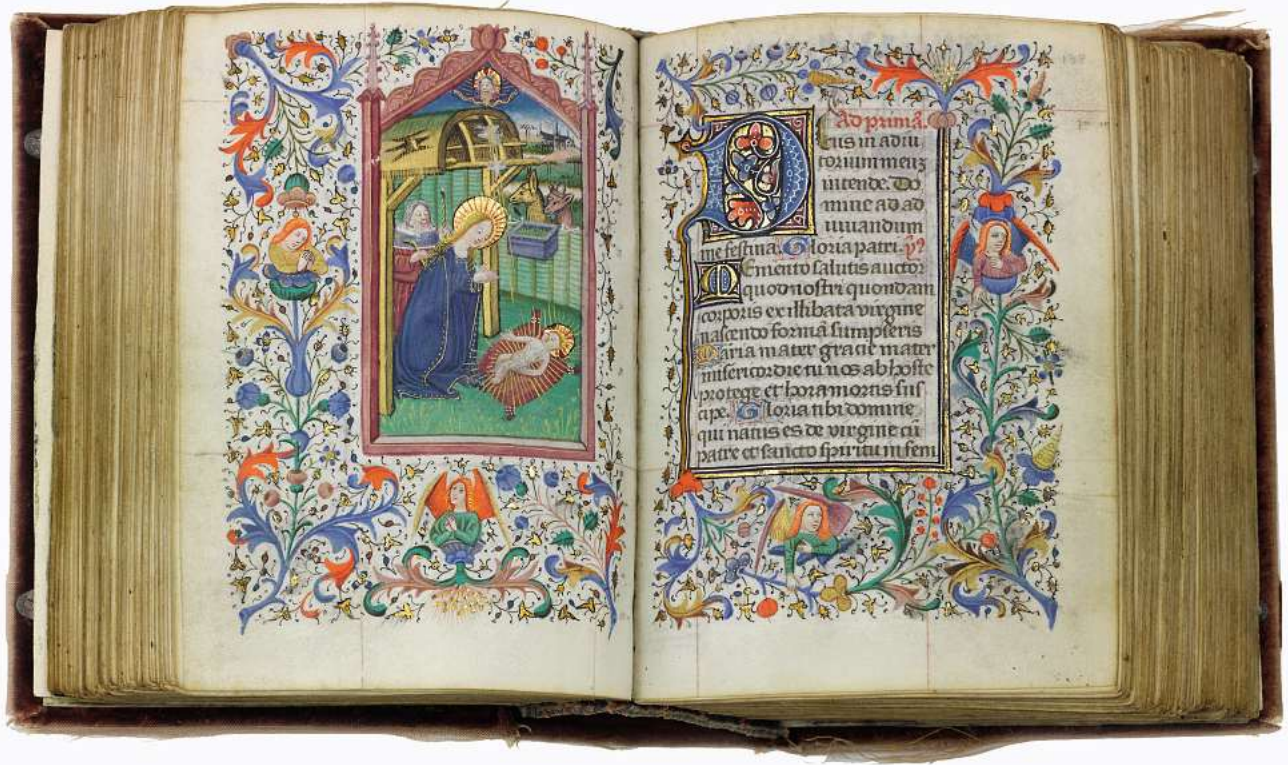 Ad primā.
Deus in adiu
torium meuz
intende. Do
mine ad ad
iuuandum
me festina. Gloria patri. ÿ?
Memento salutis auctor
quod nostri quondam
corporis ex illibata virgine
nascendo formā sumpseris
Maria mater gracie mater
misericordie tu nos ab hoste
protege et hora mortis sus
cipe. Gloria tibi domine
qui natus es de virgine cū
patre et sancto spiritu in semi